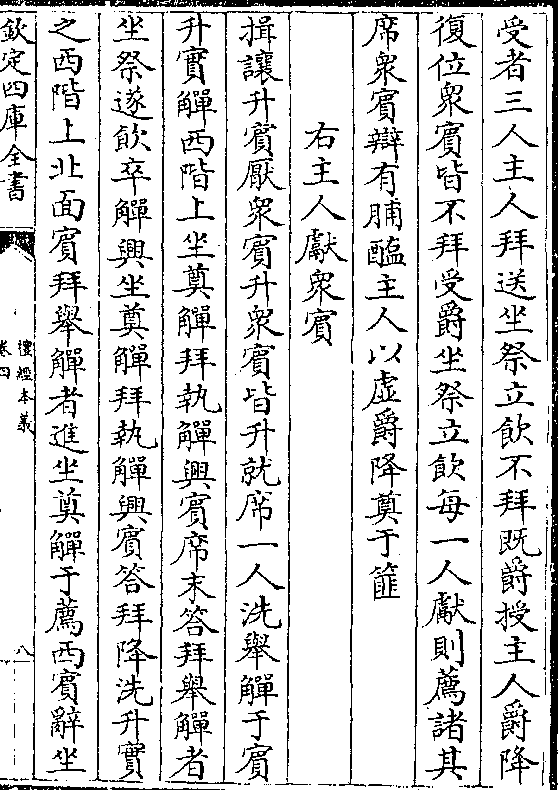 受者三人主人拜送坐祭立飲不拜既爵授主人爵降
復位衆賓皆不拜受爵坐祭立飲每一人獻則薦諸其
席衆賓辯有脯醢主人以虛爵降奠于篚
右主人獻衆賓
揖讓升賓厭衆賓升衆賓皆升就席一人洗舉觶于賓
升實觶西階上坐奠觶拜執觶興賓席末答拜舉觶者
坐祭遂飲卒觶興坐奠觶拜執觶興賓答拜降洗升實
之西階上北面賓拜舉觶者進坐奠觶于薦西賓辭坐
欽定四庫全書
禮經本義
卷四
八